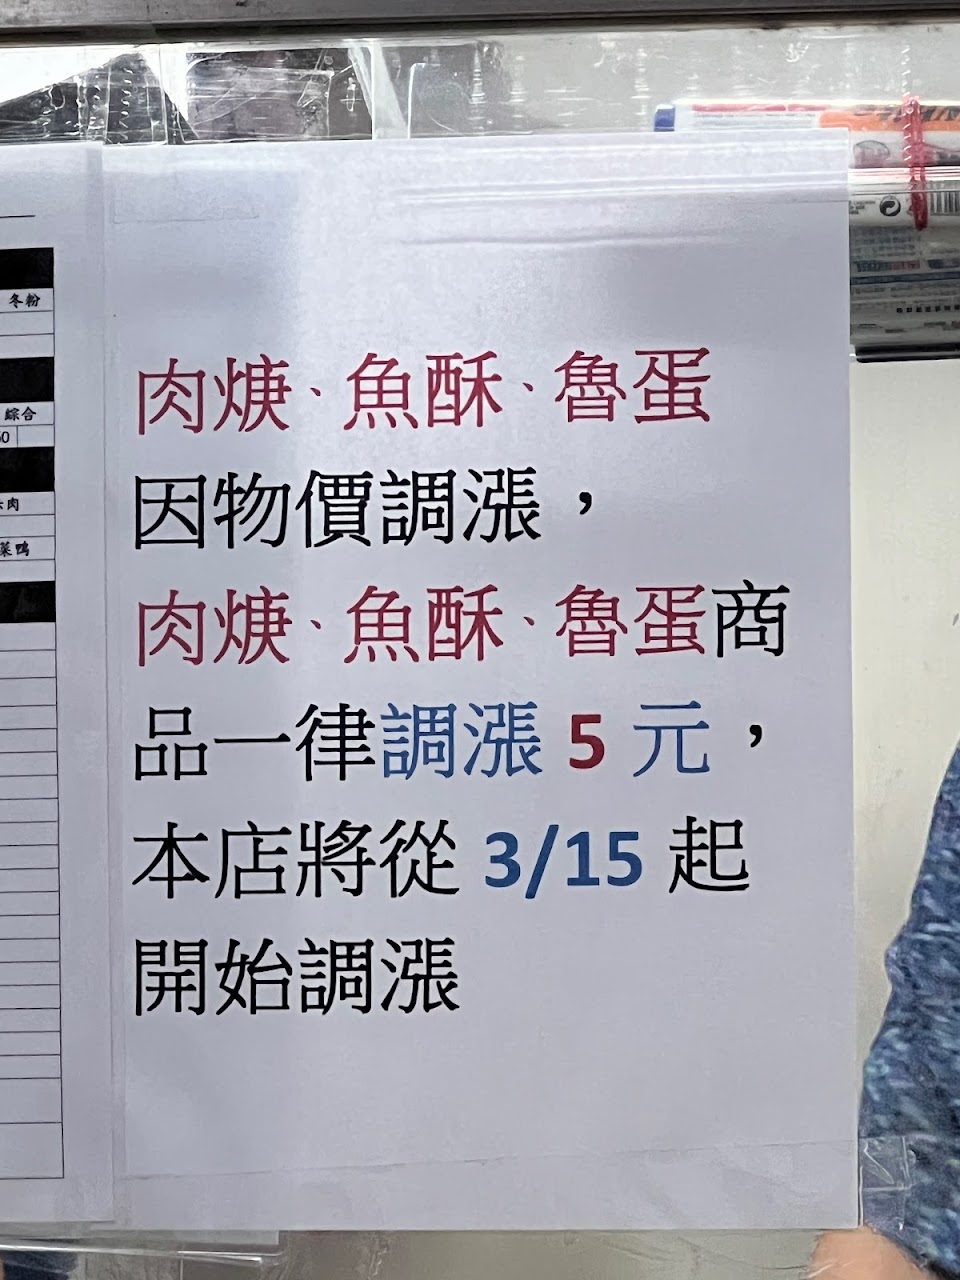 冬粉
綜合
肉
菜鴨
肉焿、魚酥、魯蛋
因物價調漲，
肉焿、魚酥、魯蛋商
品一律調漲 5 元，
本店將從 3/15 起
開始調漲